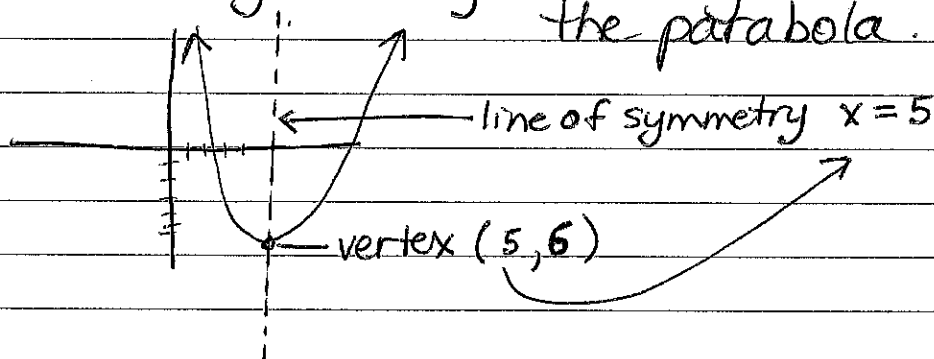 the parabola.
line of symmetry x = 5
vertex (5,6)